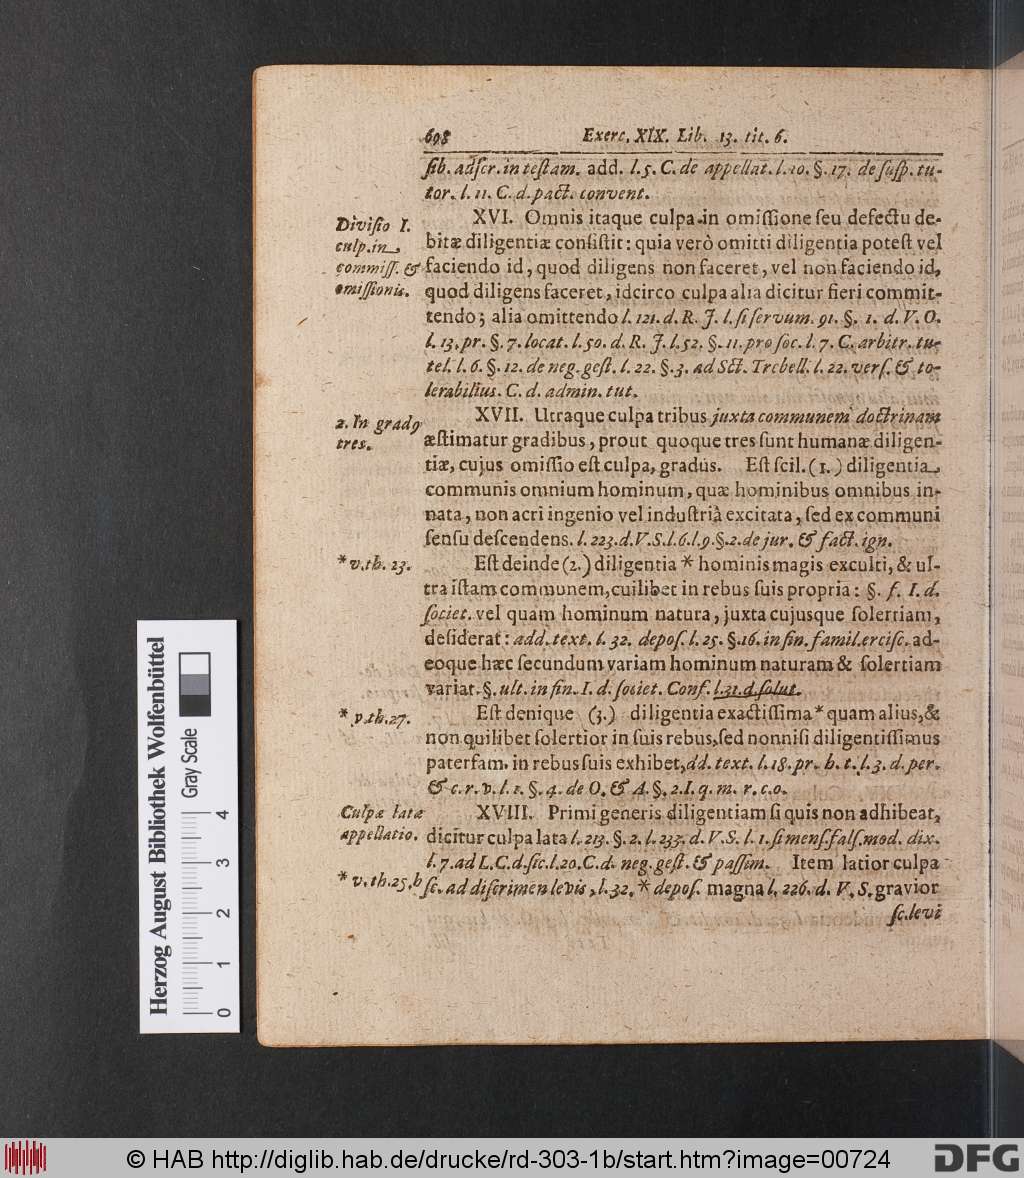 698 Exerc. XIX. Lib. 13. tit. 6.
sib. adscr. in testam. add. l. 5. C. de appellat. l. 10. §. 17. de susp. tu-
tor. l. 11. C. d. pact. convent.
Divisio I.
culp. in
commiss. &
omissionis.
XVI. Omnis itaque culpa in omissione seu defectu de-
bitæ diligentiæ consistit: quia verò omitti diligentia potest vel
faciendo id, quod diligens non faceret, vel non faciendo id,
quod diligens faceret, idcirco culpa alia dicitur fieri commit-
tendo; alia omittendo l. 121. d. R. J. l. si servum. 91. §. 1. d. V. O.
l. 13. pr. §. 7. locat. l. 50. d. R. J. l. 52. §. 11. pro soc. l. 7. C. arbitr. tu-
tel. l. 6. §. 12. de neg. gest. l. 22. §. 3. ad Sct. Trebell. l. 22. vers. & to-
lerabilius. C. d. admin. tut.
2. In gradꝰ
tres.
XVII. Utraque culpa tribus juxta communem doctrinam
æstimatur gradibus, prout quoque tres sunt humanæ diligen-
tiæ, cujus omissio est culpa, gradus. Est scil. (1.) diligentia
communis omnium hominum, quæ hominibus omnibus in-
nata, non acri ingenio vel industriâ excitata, sed ex communi
sensu descendens. l. 223. d. V. S. l. 6. l. 9. §. 2. de jur. & fact. ign.
* v. th. 23.
Est deinde (2.) diligentia * hominis magis exculti, & ul-
tra istam communem, cuilibet in rebus suis propria: §. f. I. d.
societ. vel quam hominum natura, juxta cujusque solertiam,
desiderat: add. text. l. 32. depos. l. 25. §. 16. in fin. famil. ercisc. ad-
eoque hæc secundum variam hominum naturam & solertiam
variat. §. ult. in fin. I. d. societ. Conf. l. 31. d. solut.
* v. th. 27.
Est denique (3.) diligentia exactissima * quam alius, &
non quilibet solertior in suis rebus, sed nonnisi diligentissimus
paterfam. in rebus suis exhibet, dd. text. l. 18. pr. h. t. l. 3. d. per.
& c. r. v. l. 1. §. 4. de O. & A. §. 2. I. q. m. r. c. o.
Culpæ latæ
appellatio.
XVIII. Primi generis diligentiam si quis non adhibeat,
dicitur culpa lata l. 213. §. 2. l. 233. d. V. S. l. 1. si mens. fals. mod. dix.
l. 7. ad L. C. d. sic. l. 20. C. d. neg. gest. & passim. Item latior culpa
* v. th. 25. b
sc. ad discrimen levis, l. 32. * depos. magna l. 226. d. V. S. gravior
sc. levi
Herzog August Bibliothek Wolfenbüttel
Gray Scale
0 1 2 3 4
© HAB http://diglib.hab.de/drucke/rd-303-1b/start.htm?image=00724
DFG